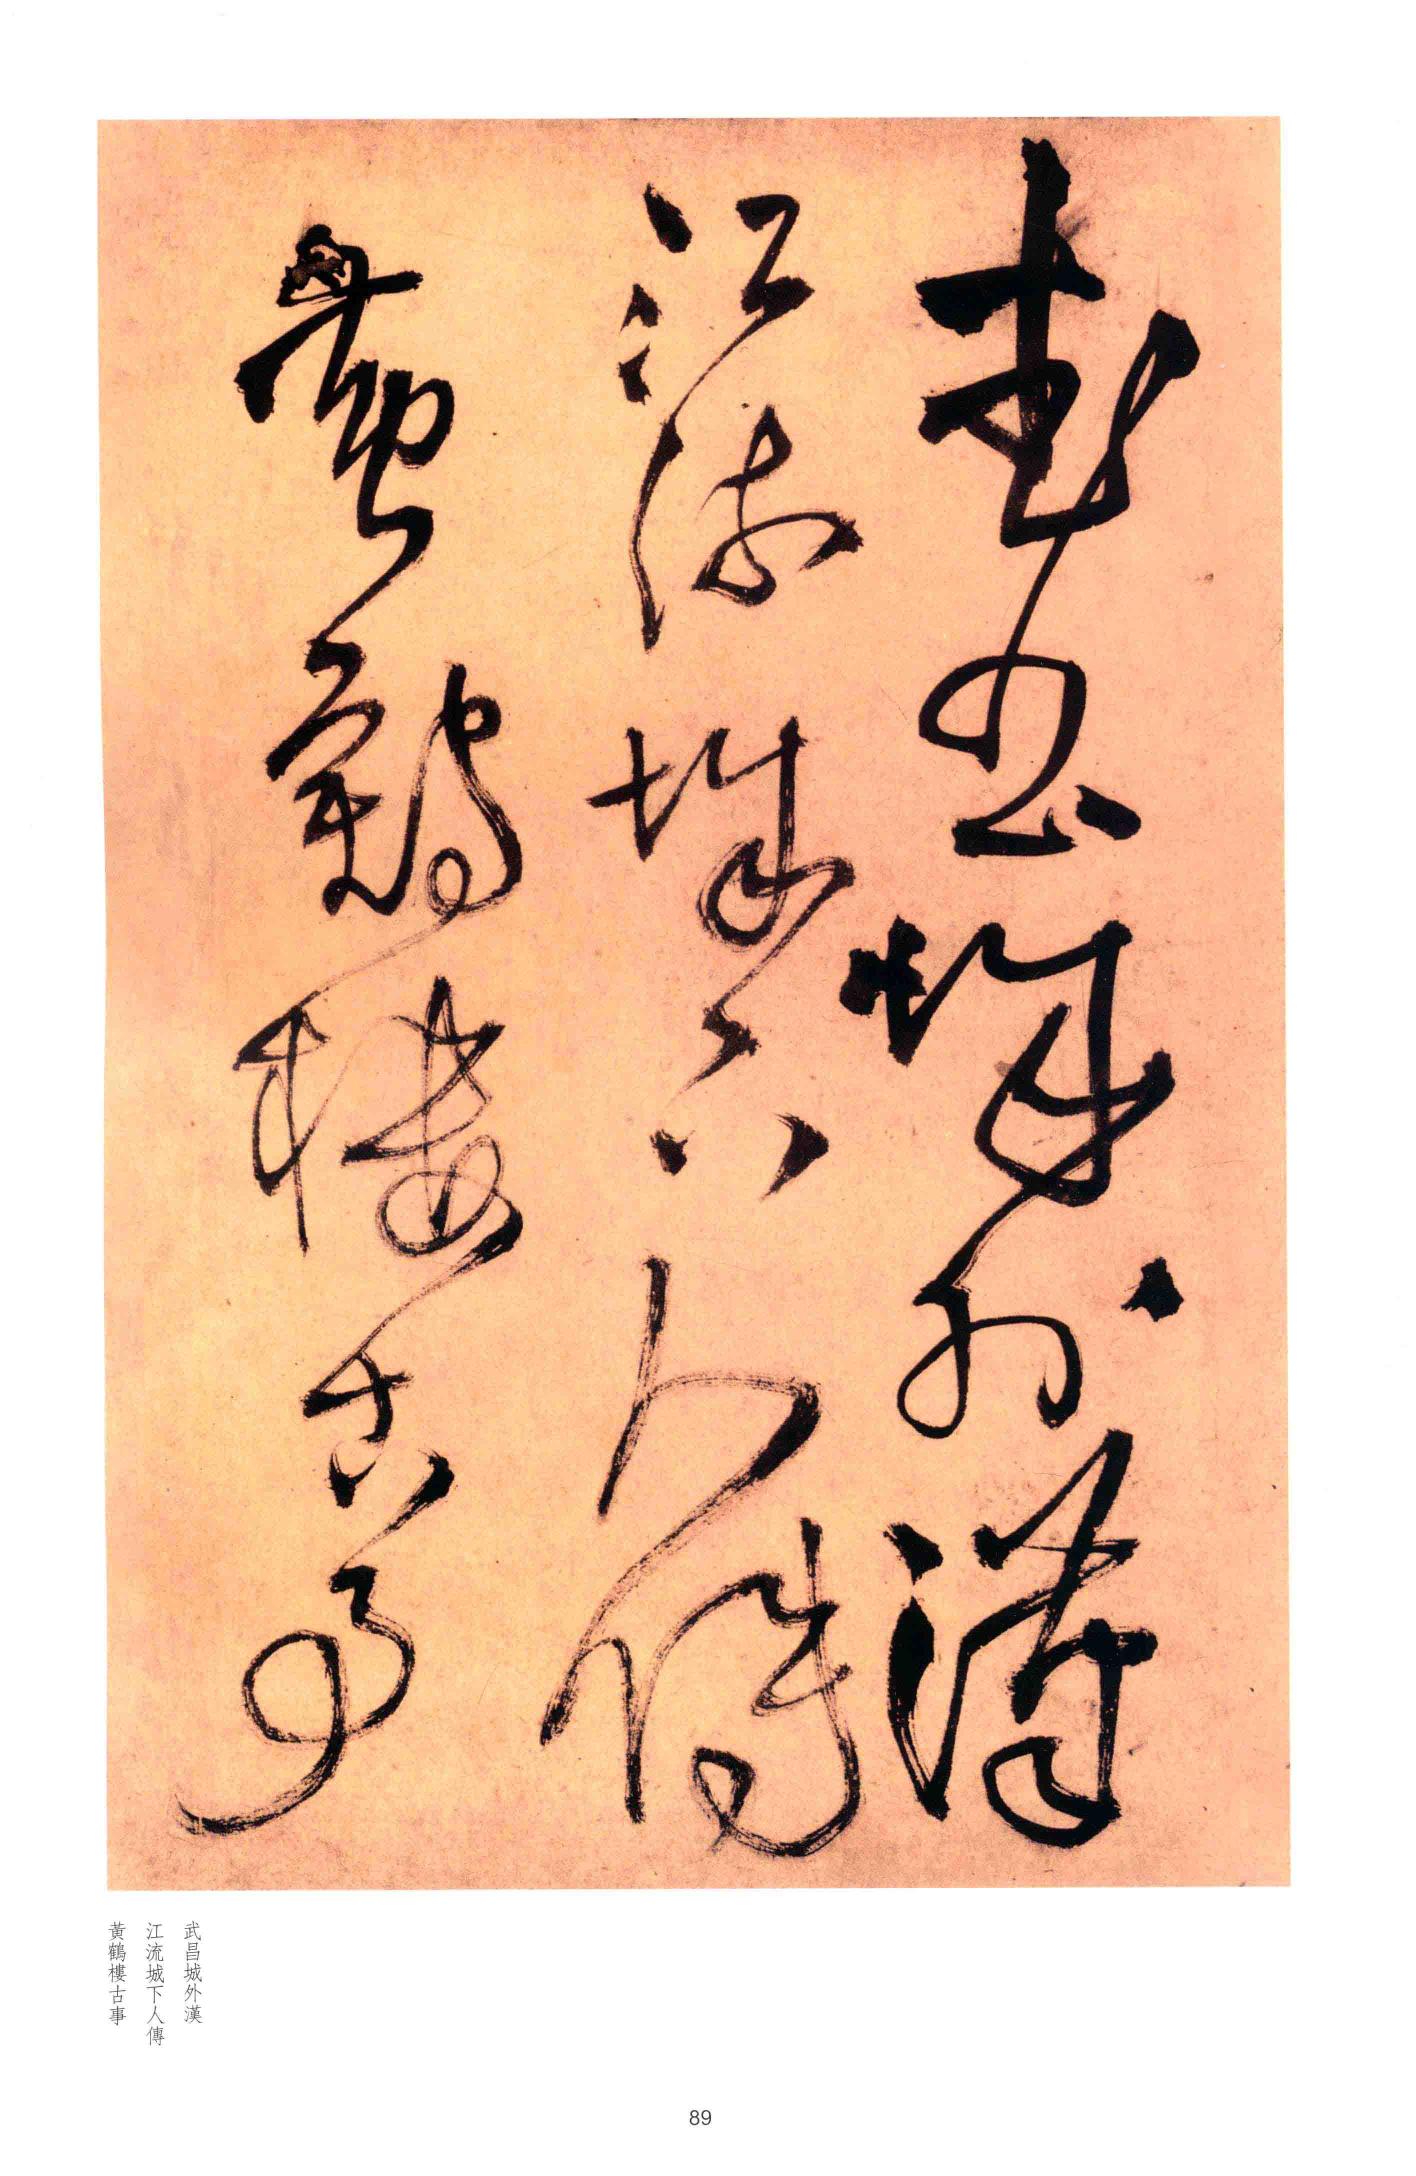 武昌城外漢
江流城下人傳
黃鶴樓古事
武昌城外漢
江流城下人傳
黃鶴樓古事
89